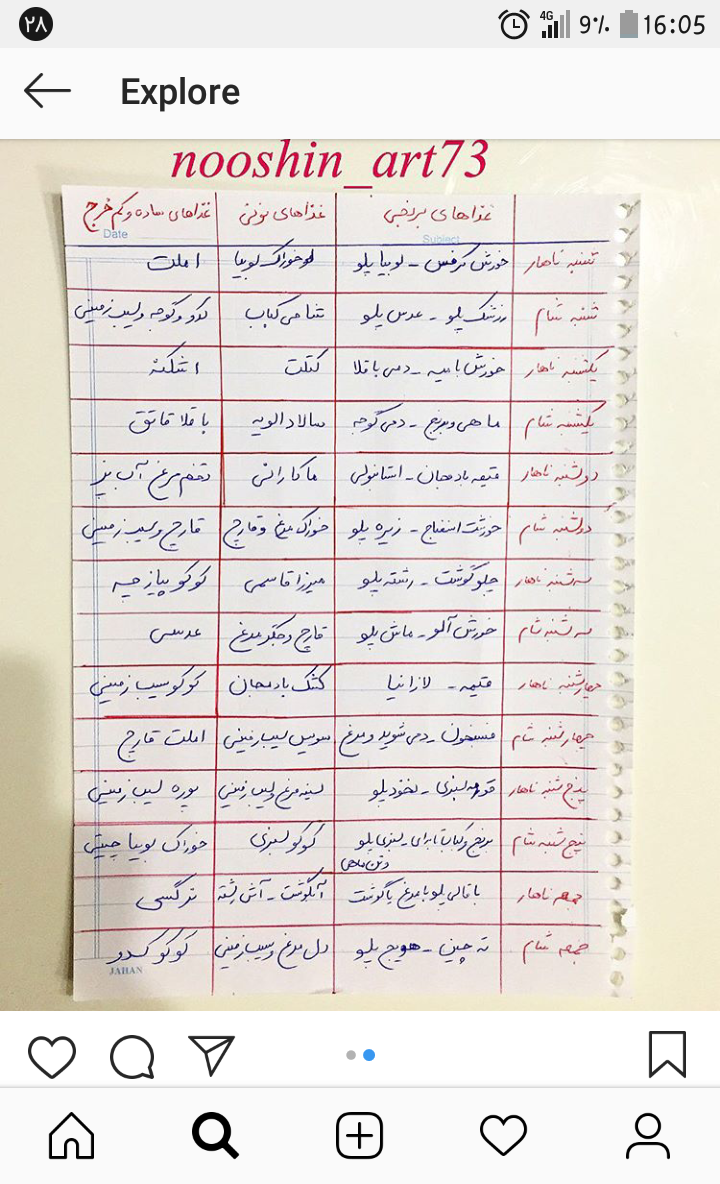 ۲۸
4G 9% 16:05
Explore
nooshin_art73
غذاهای برنجی غذاهای نونی غذاهای ساده و کم خرج
Subject Date
شنبه ناهار خورش کرفس - لوبیا پلو خوراک لوبیا املت
شنبه شام زرشک پلو - عدس پلو شامی کباب کدو و گوجه و سیب زمینی
یکشنبه ناهار خورش بامیه - دمی باقلا کتلت اشکنه
یکشنبه شام ماهی و برنج - دمی گوجه سالاد الویه باقلا قاتق
دوشنبه ناهار قیمه بادمجان - استانبولی ماکارانی تخم مرغ آب پز
دوشنبه شام خورشت اسفناج - زیره پلو خوراک مرغ و قارچ قارچ و سیب زمینی
سه شنبه ناهار چلو گوشت - رشته پلو میرزا قاسمی کوکو پیازچه
سه شنبه شام خورش آلو - ماش پلو قارچ و جگر مرغ عدسی
چهارشنبه ناهار قیمه - لازانیا کشک بادمجان کوکو سیب زمینی
چهارشنبه شام فسنجون - دمی شوید و مرغ سوسیس سیب زمینی املت قارچ
پنج شنبه ناهار قورمه سبزی - نخود پلو سینه مرغ و سیب زمینی پوره سیب زمینی
پنج شنبه شام برنج و کباب تابه‌ای - سبزی پلو و تن ماهی کوکو سبزی خوراک لوبیا چیتی
جمعه ناهار باقالی پلو با مرغ یا گوشت آبگوشت - آش رشته نرگسی
جمعه شام ته چین - هویج پلو دل مرغ و سیب زمینی کوکو کدو
JAHAN